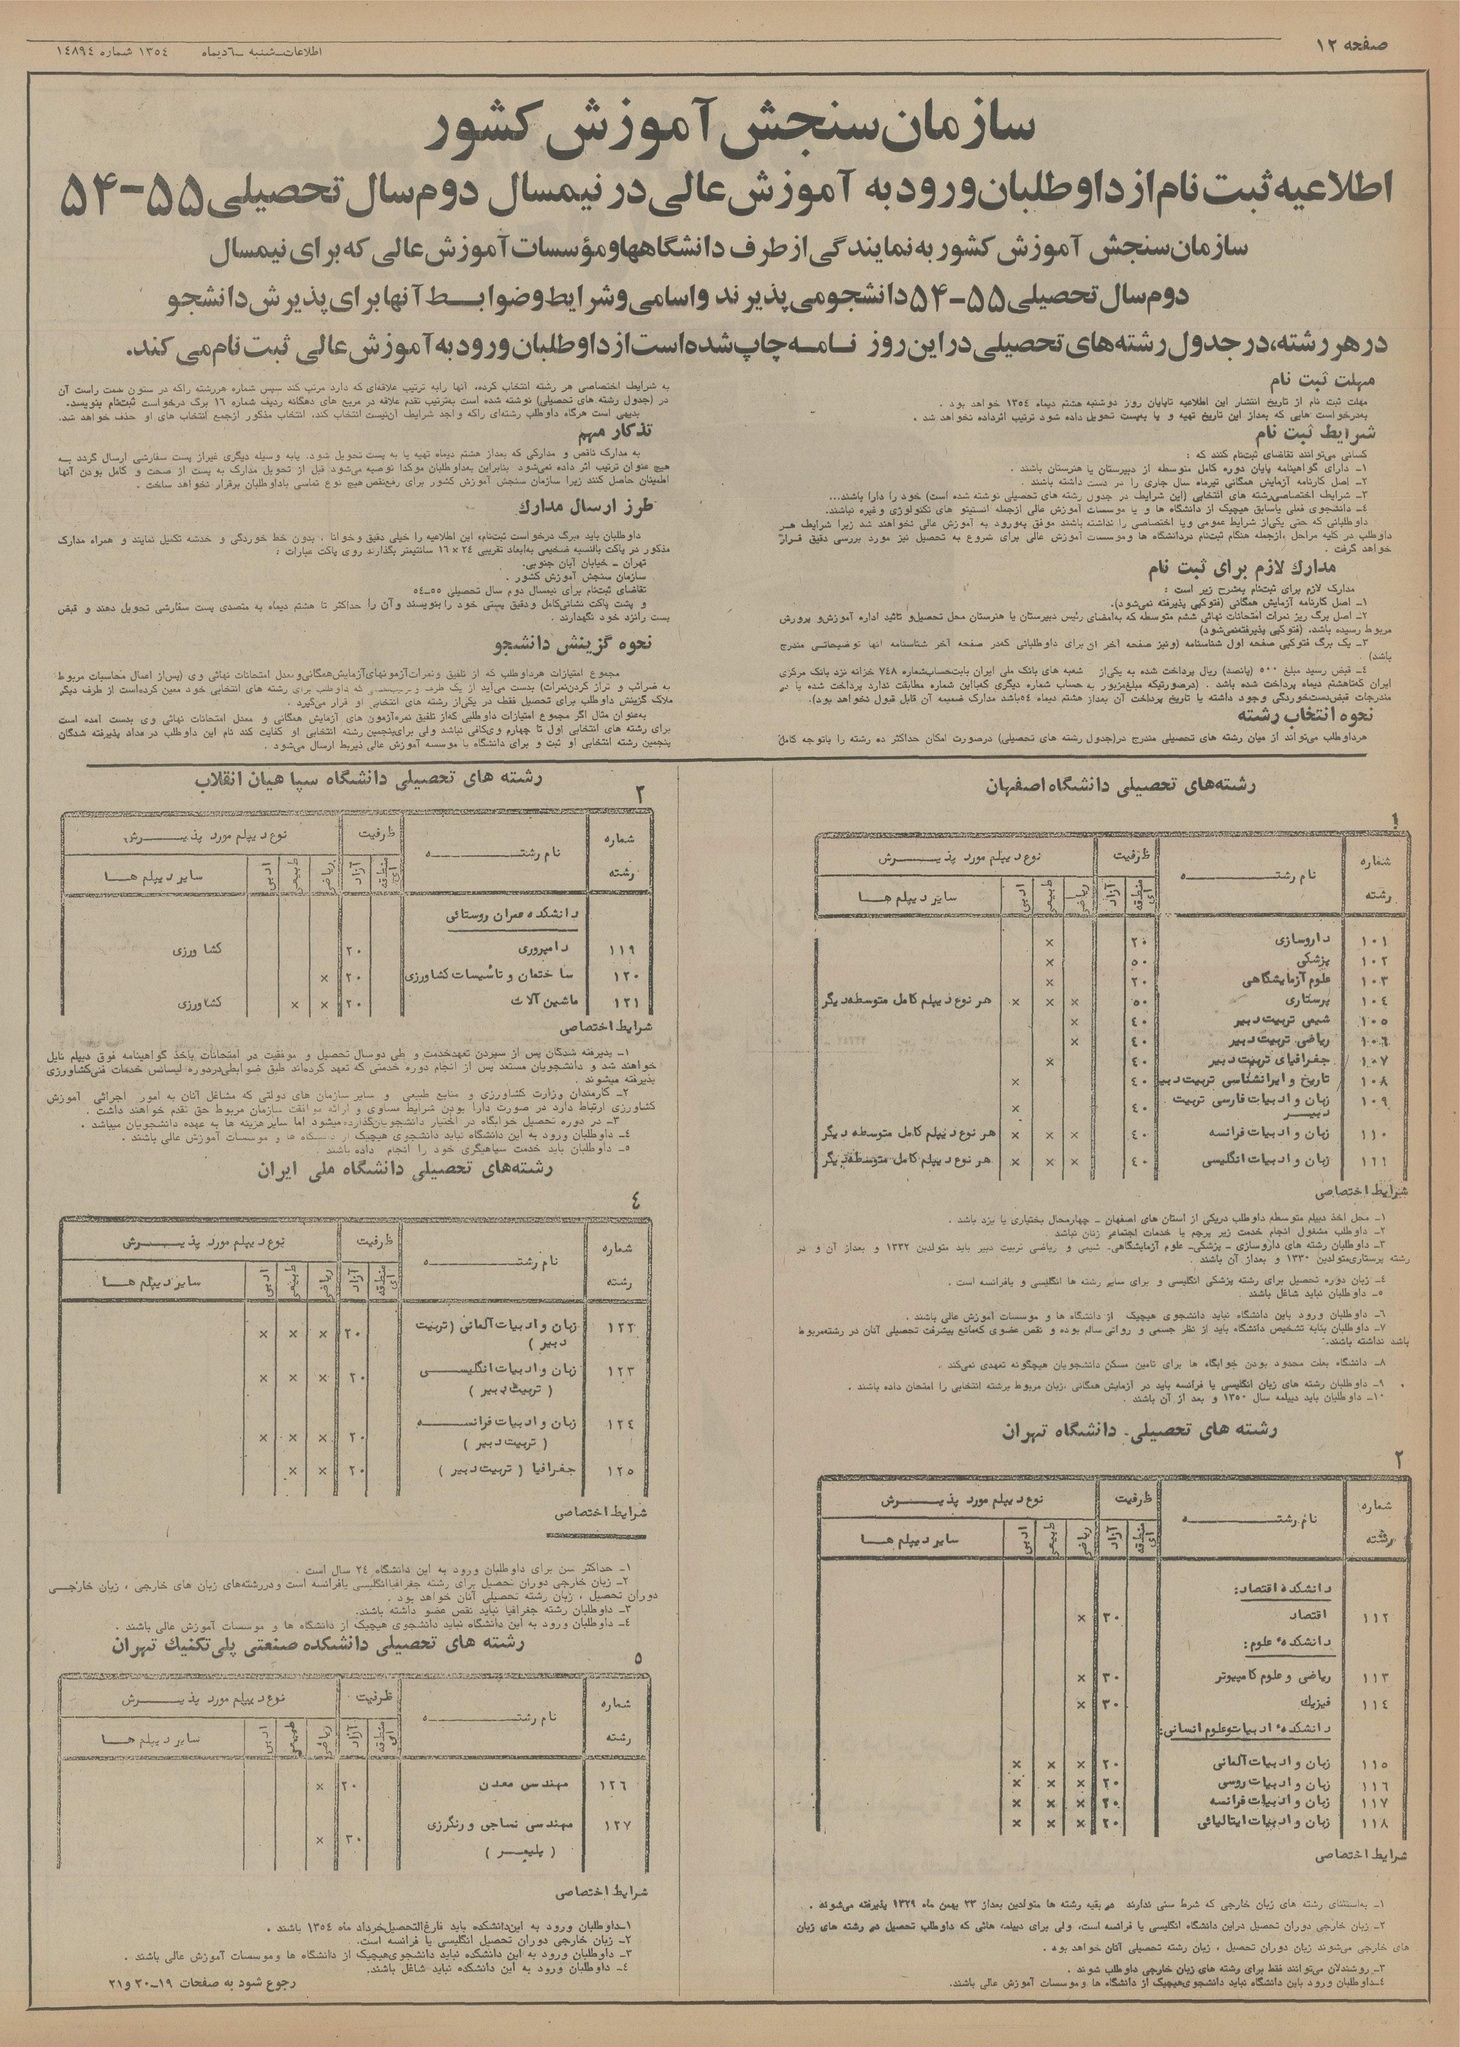 صفحه ۱۲
اطلاعات ـ شنبه ـ ٦ دیماه ١٣٥٤ شماره ١٤٨٩٤
سازمان سنجش آموزش کشور
اطلاعیه ثبت نام از داوطلبان ورود به آموزش عالی در نیمسال دوم سال تحصیلی ۵۵-۵۴
سازمان سنجش آموزش کشور به نمایندگی از طرف دانشگاهها و مؤسسات آموزش عالی که برای نیمسال
دوم سال تحصیلی ۵۵-۵۴ دانشجو می پذیرند و اسامی و شرایط و ضوابط آنها برای پذیرش دانشجو
در هر رشته، در جدول رشته های تحصیلی در این روز نامه چاپ شده است از داوطلبان ورود به آموزش عالی ثبت نام می کند.
مهلت ثبت نام
مهلت ثبت نام از تاریخ انتشار این اطلاعیه تا پایان روز دوشنبه هشتم دیماه ١٣٥٤ خواهد بود .
به درخواست هایی که بعد از این تاریخ تهیه و یا به پست تحویل داده شود ترتیب اثر داده نخواهد شد .
شرایط ثبت نام
کسانی می توانند تقاضای ثبت نام کنند که :
١ـ دارای گواهینامه پایان دوره کامل متوسطه از دبیرستان یا هنرستان باشند .
٢ـ اصل کارنامه آزمایش همگانی تیرماه سال جاری را در دست داشته باشند .
٣ـ شرایط اختصاصی رشته های انتخابی (این شرایط در جدول رشته های تحصیلی نوشته شده است) خود را دارا باشند...
٤ـ دانشجوی فعلی یا سابق هیچیک از دانشگاه ها و یا موسسات آموزش عالی از جمله انستیتو های تکنولوژی و غیره نباشند.
داوطلبانی که حتی یکی از شرایط عمومی و یا اختصاصی را نداشته باشند موفق به ورود به آموزش عالی نخواهند شد زیرا شرایط هر
داوطلب در کلیه مراحل ، از جمله هنگام ثبت نام در دانشگاه ها و موسسات آموزش عالی برای شروع به تحصیل نیز مورد بررسی دقیق قرار
خواهد گرفت .
مدارک لازم برای ثبت نام
مدارک لازم برای ثبت نام بشرح زیر است :
١ـ اصل کارنامه آزمایش همگانی (فتوکپی پذیرفته نمی شود).
٢ـ اصل برگ ریز نمرات امتحانات نهائی ششم متوسطه که به امضای رئیس دبیرستان یا هنرستان محل تحصیل و تائید اداره آموزش و پرورش
مربوط رسیده باشد. (فتوکپی پذیرفته نمی شود)
٣ـ یک برگ فتوکپی صفحه اول شناسنامه (و نیز صفحه آخر آن برای داوطلبانی که در صفحه آخر شناسنامه آنها توضیحاتی مندرج
باشد) .
٤ـ قبض رسید مبلغ ٥٠٠ (پانصد) ریال پرداخت شده به یکی از شعبه های بانک ملی ایران بابت حساب شماره ٧٤٨ خزانه نزد بانک مرکزی
ایران که تا هشتم دیماه پرداخت شده باشد . (در صورتیکه مبلغ مزبور به حساب شماره دیگری که با این شماره مطابقت ندارد پرداخت شده یا در
مندرجات قبض دست خوردگی وجود داشته یا تاریخ پرداخت آن بعد از هشتم دیماه ٥٤ باشد مدارک ضمیمه آن قابل قبول نخواهد بود).
نحوه انتخاب رشته
هر داوطلب می تواند از میان رشته های تحصیلی مندرج در (جدول رشته های تحصیلی) در صورت امکان حداکثر ده رشته را با توجه کامل
به شرایط اختصاصی هر رشته انتخاب کرده، آنها را به ترتیب علاقه ای که دارد مرتب کند سپس شماره هر رشته را که در ستون سمت راست آن
در (جدول رشته های تحصیلی) نوشته شده است به ترتیب تقدم علاقه در مربع های دهگانه ردیف شماره ١٦ برگ درخواست ثبت نام بنویسد.
بدیهی است هرگاه داوطلب رشته ای را که واجد شرایط آن نیست انتخاب کند، انتخاب مذکور از جمع انتخاب های او حذف خواهد شد.
تذکار مهم
به مدارک ناقص و مدارکی که بعد از هشتم دیماه تهیه یا به پست تحویل شود. یا به وسیله دیگری غیر از پست سفارشی ارسال گردد به
هیچ عنوان ترتیب اثر داده نمی شود بنابراین به داوطلبان موکدا توصیه می شود قبل از تحویل مدارک به پست از صحت و کامل بودن آنها
اطمینان حاصل کنند زیرا سازمان سنجش آموزش کشور برای رفع نقص هیچ نوع تماسی با داوطلبان برقرار نخواهد ساخت .
طرز ارسال مدارک
داوطلبان باید «برگ درخواست ثبت نام» این اطلاعیه را خیلی دقیق و خوانا ، بدون خط خوردگی و خدشه تکمیل نمایند و همراه مدارک
مذکور در پاکت بالنسبه ضخیمی به ابعاد تقریبی ٢٤ × ١٦ سانتیمتر بگذارند روی پاکت عبارات :
تهران ـ خیابان آبان جنوبی.
سازمان سنجش آموزش کشور .
تقاضای ثبت نام برای نیمسال دوم سال تحصیلی ٥٥ـ٥٤
و پشت پاکت نشانی کامل و دقیق پستی خود را بنویسند و آن را حداکثر تا هشتم دیماه به متصدی پست سفارشی تحویل دهند و قبض
پست را نزد خود نگهدارند .
نحوه گزینش دانشجو
مجموع امتیازات هر داوطلب که از تلفیق و نمرات آزمونهای آزمایش همگانی و معدل امتحانات نهائی وی (پس از اعمال محاسبات مربوط
به ضرائب و تراز کردن نمرات) بدست می آید از یک طرف و که داوطلب برای رشته های انتخابی خود معین کرده است از طرف دیگر
ملاک گزینش داوطلب برای تحصیل فقط در یکی از رشته های انتخابی او قرار می گیرد .
به عنوان مثال اگر مجموع امتیازات داوطلبی که از تلفیق نمره آزمون های آزمایش همگانی و معدل امتحانات نهائی وی بدست آمده است
برای رشته های انتخابی اول تا چهارم وی کافی نباشد ولی برای پنجمین رشته انتخابی او کفایت کند نام این داوطلب در عداد پذیرفته شدگان
پنجمین رشته انتخابی او ثبت و برای دانشگاه یا موسسه آموزش عالی ذیربط ارسال می شود .
رشته های تحصیلی دانشگاه اصفهان
۱
شماره رشته | نام رشته | ظرفیت | نوع دیپلم مورد پذیرش
منطقه ای | آزاد | ریاضی | طبیعی | ادبی | سایر دیپلم ها
١٠١ داروسازی ٢٠ ×
١٠٢ پزشکی ٥٠ ×
١٠٣ علوم آزمایشگاهی ٢٠ ×
١٠٤ پرستاری ٥٠ × × × هر نوع دیپلم کامل متوسطه دیگر
١٠٥ شیمی تربیت دبیر ٤٠ ×
١٠٦ ریاضی تربیت دبیر ٤٠ ×
١٠٧ جغرافیای تربیت دبیر ٤٠ ×
١٠٨ تاریخ و ایرانشناسی تربیت دبیر ٤٠ ×
١٠٩ زبان و ادبیات فارسی تربیت دبیر ٤٠ ×
١١٠ زبان و ادبیات فرانسه ٤٠ × × × هر نوع دیپلم کامل متوسطه دیگر
١١١ زبان و ادبیات انگلیسی ٤٠ × × × هر نوع دیپلم کامل متوسطه دیگر
شرایط اختصاصی
١ـ محل اخذ دیپلم متوسطه داوطلب در یکی از استان های اصفهان ـ چهارمحال بختیاری یا یزد باشد .
٢ـ داوطلب مشغول انجام خدمت زیر پرچم یا خدمات اجتماعی زنان نباشد
٣ـ داوطلبان رشته های داروسازی ـ پزشکی ـ علوم آزمایشگاهی، شیمی و ریاضی تربیت دبیر باید متولدین ١٣٣٢ و بعد از آن و در
رشته پرستاری متولدین ١٣٣٠ و بعد از آن باشند .
٤ـ زبان دوره تحصیل برای رشته پزشکی انگلیسی و برای سایر رشته ها انگلیسی و یا فرانسه است .
٥ـ داوطلبان نباید شاغل باشند .
٦ـ داوطلبان ورود باین دانشگاه نباید دانشجوی هیچیک از دانشگاه ها و موسسات آموزش عالی باشند .
٧ـ داوطلبان بنابه تشخیص دانشگاه باید از نظر جسمی و روانی سالم بوده و نقص عضوی که مانع پیشرفت تحصیلی آنان در رشته مربوط
باشد نداشته باشند.
٨ـ دانشگاه بعلت محدود بودن خوابگاه ها برای تامین مسکن دانشجویان هیچگونه تعهدی نمی کند .
٩ـ داوطلبان رشته های زبان انگلیسی یا فرانسه باید در آزمایش همگانی ، زبان مربوط به رشته انتخابی را امتحان داده باشند .
١٠ـ داوطلبان باید دیپلمه سال ١٣٥٠ و بعد از آن باشند .
رشته های تحصیلی دانشگاه تهران
۲
شماره رشته | نام رشته | ظرفیت | نوع دیپلم مورد پذیرش
منطقه ای | آزاد | ریاضی | طبیعی | ادبی | سایر دیپلم ها
دانشکده اقتصاد:
١١٢ اقتصاد ٣٠ ×
دانشکده علوم:
١١٣ ریاضی و علوم کامپیوتر ٣٠ ×
١١٤ فیزیک ٣٠ ×
دانشکده ادبیات و علوم انسانی:
١١٥ زبان و ادبیات آلمانی ٢٠ × × ×
١١٦ زبان و ادبیات روسی ٢٠ × × ×
١١٧ زبان و ادبیات فرانسه ٢٠ × × ×
١١٨ زبان و ادبیات ایتالیائی ٢٠ × × ×
شرایط اختصاصی
١ـ به استثنای رشته های زبان خارجی که شرط سنی ندارند در بقیه رشته ها متولدین بعد از ٢٣ بهمن ماه ١٣٢٩ پذیرفته می شوند .
٢ـ زبان خارجی دوران تحصیل در این دانشگاه انگلیسی یا فرانسه است، ولی برای دیپلمه هائی که داوطلب تحصیل در رشته های زبان
های خارجی می شوند زبان دوران تحصیل ، زبان رشته تحصیلی آنان خواهد بود .
٣ـ روشندلان می توانند فقط برای رشته های زبان خارجی داوطلب شوند .
٤ـ داوطلبان ورود باین دانشگاه نباید دانشجوی هیچیک از دانشگاه ها و موسسات آموزش عالی باشند.
رشته های تحصیلی دانشگاه سپاهیان انقلاب
۳
شماره رشته | نام رشته | ظرفیت | نوع دیپلم مورد پذیرش
منطقه ای | آزاد | ریاضی | طبیعی | ادبی | سایر دیپلم ها
دانشکده عمران روستائی
١١٩ دامپروری ٢٠ کشاورزی
١٢٠ ساختمان و تأسیسات کشاورزی ٢٠ ×
١٢١ ماشین آلات ٢٠ × × کشاورزی
شرایط اختصاصی
١ـ پذیرفته شدگان پس از سپردن تعهد خدمت و طی دو سال تحصیل و موفقیت در امتحانات باخذ گواهینامه فوق دیپلم نایل
خواهند شد و دانشجویان مستعد پس از انجام دوره خدمتی که تعهد کرده اند طبق ضوابطی در دوره لیسانس خدمات فنی کشاورزی
پذیرفته میشوند .
٢ـ کارمندان وزارت کشاورزی و منابع طبیعی و سایر سازمان های دولتی که مشاغل آنان به امور اجرائی آموزش
کشاورزی ارتباط دارد در صورت دارا بودن شرایط مساوی و ارائه موافقت سازمان مربوط حق تقدم خواهند داشت .
٣ـ در دوره تحصیل خوابگاه در اختیار دانشجویان گذارده میشود اما سایر هزینه ها به عهده دانشجویان میباشد .
٤ـ داوطلبان ورود به این دانشگاه نباید دانشجوی هیچیک از دانشگاه ها و موسسات آموزش عالی باشند .
٥ـ داوطلبان باید خدمت سپاهیگری خود را انجام داده باشند .
رشته های تحصیلی دانشگاه ملی ایران
٤
شماره رشته | نام رشته | ظرفیت | نوع دیپلم مورد پذیرش
منطقه ای | آزاد | ریاضی | طبیعی | ادبی | سایر دیپلم ها
١٢٢ زبان و ادبیات آلمانی (تربیت دبیر) ٢٠ × × ×
١٢٣ زبان و ادبیات انگلیسی (تربیت دبیر) ٢٠ × × ×
١٢٤ زبان و ادبیات فرانسه (تربیت دبیر) ٢٠ × × ×
١٢٥ جغرافیا (تربیت دبیر) ٢٠ × ×
شرایط اختصاصی
١ـ حداکثر سن برای داوطلبان ورود به این دانشگاه ٢٤ سال است .
٢ـ زبان خارجی دوران تحصیل برای رشته جغرافیا انگلیسی یا فرانسه است و در رشته های زبان های خارجی ، زبان خارجی
دوران تحصیل ، زبان رشته تحصیلی آنان خواهد بود .
٣ـ داوطلبان رشته جغرافیا نباید نقص عضو داشته باشند.
٤ـ داوطلبان ورود به این دانشگاه نباید دانشجوی هیچیک از دانشگاه ها و موسسات آموزش عالی باشند .
رشته های تحصیلی دانشکده صنعتی پلی تکنیک تهران
٥
شماره رشته | نام رشته | ظرفیت | نوع دیپلم مورد پذیرش
منطقه ای | آزاد | ریاضی | طبیعی | ادبی | سایر دیپلم ها
١٢٦ مهندسی معدن ٢٠ ×
١٢٧ مهندسی نساجی و رنگرزی (پلیمر) ٣٠ ×
شرایط اختصاصی
١ـ داوطلبان ورود به این دانشکده باید فارغ التحصیل خرداد ماه ١٣٥٤ باشند .
٢ـ زبان خارجی دوران تحصیل انگلیسی یا فرانسه است.
٣ـ داوطلبان ورود به این دانشکده نباید دانشجوی هیچیک از دانشگاه ها و موسسات آموزش عالی باشند .
٤ـ داوطلبان ورود به این دانشکده نباید شاغل باشند.
رجوع شود به صفحات ١٩ـ٢٠ و ٢١